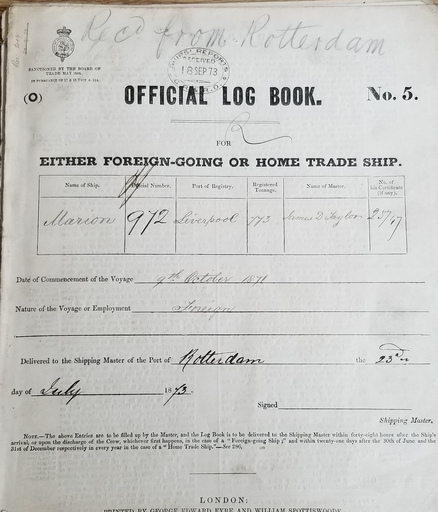 Recd from Rotterdam
SANCTIONED BY THE BOARD OF
TRADE MAY 1855.
IN PURSUANCE OF 17 & 18 VICT. c. 104.
RECEIVED
18 SEP 73
(O)
OFFICIAL LOG BOOK.
No. 5.
FOR
EITHER FOREIGN-GOING OR HOME TRADE SHIP.
Name of Ship. Official Number. Port of Registry. Registered Tonnage. Name of Master. No. of his Certificate (if any).
Marion 972 Liverpool 773 James D Taylor
Date of Commencement of the Voyage 9th October 1871
Nature of the Voyage or Employment Foreign
Delivered to the Shipping Master of the Port of Rotterdam the 23rd
day of July 1873.
Signed
Shipping Master.
NOTE.—The above Entries are to be filled up by the Master, and the Log Book is to be delivered to the Shipping Master within forty-eight hours after the Ship's
arrival, or upon the discharge of the Crew, whichever first happens, in the case of a "Foreign-going Ship;" and within twenty-one days after the 30th of June and the
31st of December respectively in every year in the case of a "Home Trade Ship."—See 286,
LONDON:
PRINTED BY GEORGE EDWARD EYRE AND WILLIAM SPOTTISWOODE